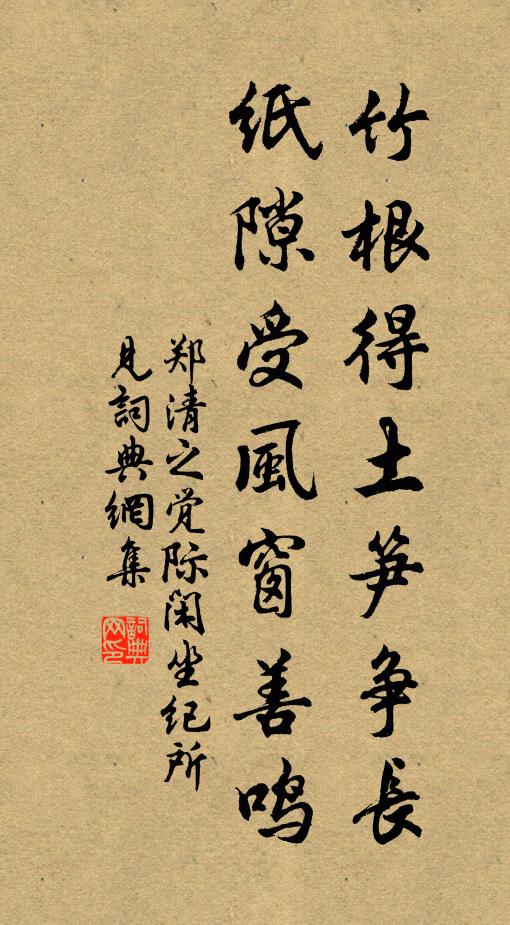 竹根得土笋争長
紙隙受風窗善鸣
郑清之觉际闲坐纪所
見詞典網集
詞典网印